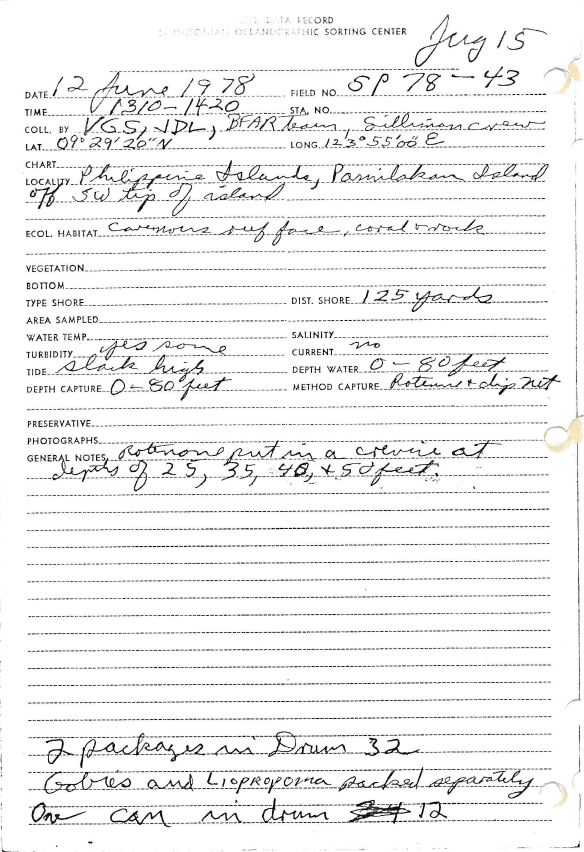 DATA RECORD
SMITHSONIAN OCEANOGRAPHIC SORTING CENTER
Jug 15
DATE 12 June 1978 FIELD NO. SP 78-43
TIME 1310-1420 STA. NO.
COLL. BY VGS, JDL, BFAR team, Silliman crew
LAT. 09° 29' 20" N LONG. 123° 55' 00" E
CHART
LOCALITY Philippine Islands, Pamilakan Island
off SW tip of island
ECOL. HABITAT Cavernous reef face, coral & rock
VEGETATION
BOTTOM
TYPE SHORE DIST. SHORE 125 yards
AREA SAMPLED
WATER TEMP. SALINITY
TURBIDITY yes some CURRENT no
TIDE slack high DEPTH WATER 0-80 feet
DEPTH CAPTURE 0-80 feet METHOD CAPTURE Rotenone & dip net
PRESERVATIVE
PHOTOGRAPHS
GENERAL NOTES Rotenone put in a crevice at
depths of 25, 35, 40, & 50 feet.
2 packages in Drum 32
Gobies and Liopropoma packed separately
One can in drum 12